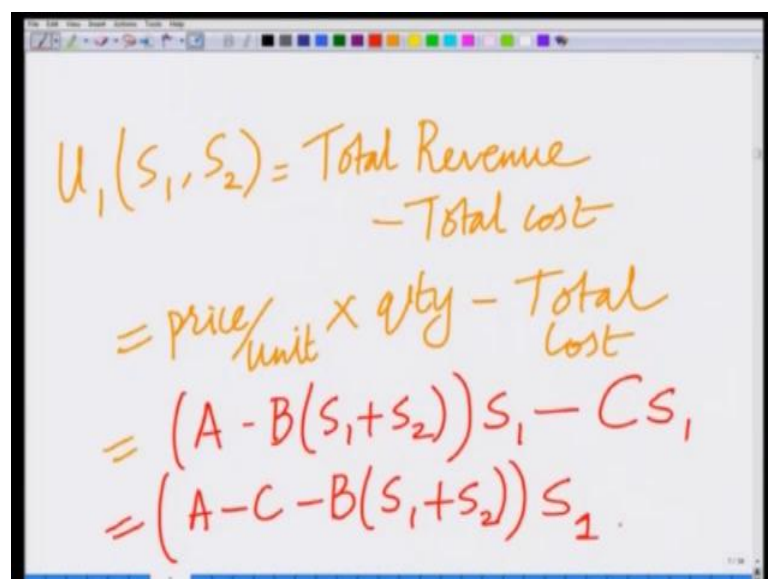 File Edit View Insert Actions Tools Help
U₁(S₁, S₂) = Total Revenue
- Total cost
= price/unit × qty - Total cost
= (A - B(S₁+S₂))S₁ - CS₁
= (A - C - B(S₁+S₂))S₁